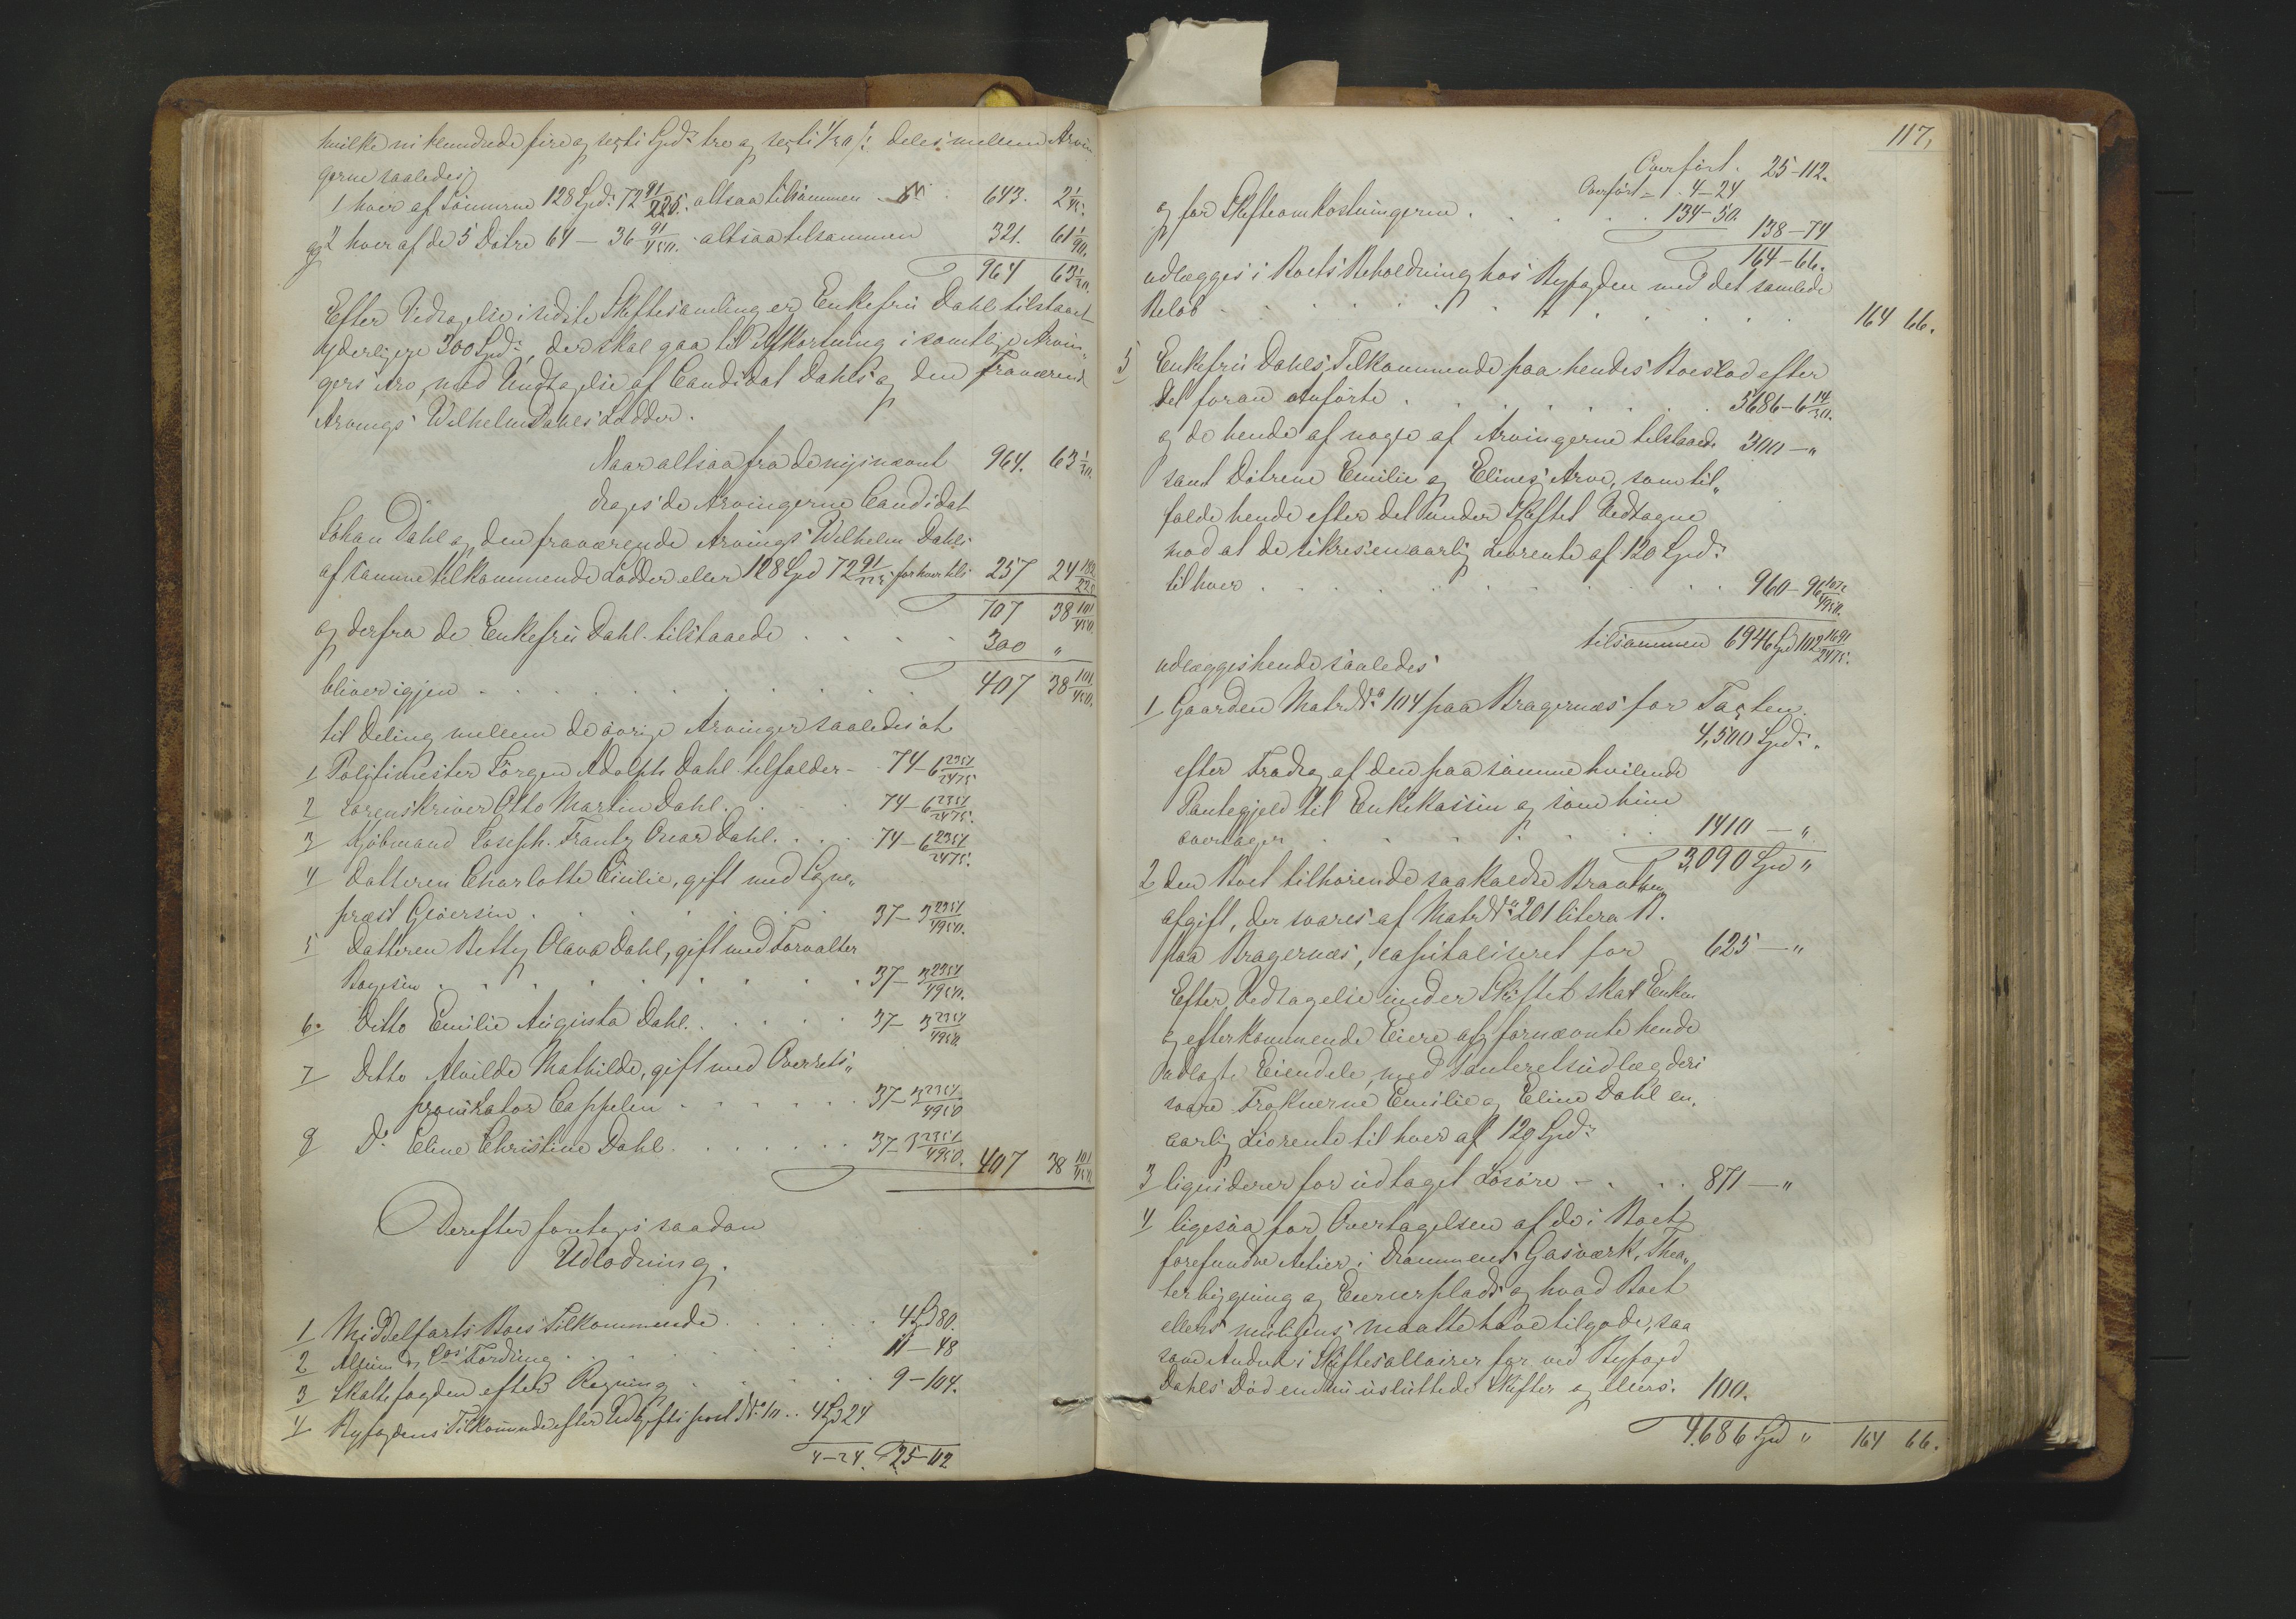 hvilke ni hundrede fire og sexti Spd: tre og sexti 1/30 ß deles mellem Arvin
gerne saaledes
1 hver af Sønnerne 128 Spd: 72 91/225. altsaa tilsammen 643. 2 1/45.
og 2 hver af de 5 Døtre 64 – 36 91/450. altsaa tilsammen 321. 61 1/90.
964 63 1/30.
Efter Vedtagelse i sidste Skiftesamling er Enkefru Dahl tilstaaet
yderligere 300 Spd:, der skal gaa til Afkortning i samtlige Arvin„
gers Arv, med Undtagelse af Candidat Dahls og den fraværende
Arvings Wilhelm Dahls Lodder.
Naar altsaa fra de nysnævnte 964. 63 1/30.
drages de Arvingerne Candidat
Johan Dahl og den fraværende Arvings Wilhelm Dahls
af samme tilkommende Lodder eller 128 Spd 72 91/225 for hver tils 257 24 182/225
707 38 101/450.
og derfra de Enkefru Dahl tilstaaede 300 „
bliver igjen 407 38 101/450.
til Deling mellem de øvrige Arvinger saaledes at
1 Politimester Jørgen Adolph Dahl tilfalder – 74–6 2354/2475.
2 Sorenskriver Otto Martin Dahl. 74–6 2354/2475.
3 Kjøbmand Joseph Frantz Oscar Dahl. 74–6 2354/2475.
4 Datteren Charlotte Cicilie, gift med Sogne„
præst Giøersen 37–3 2354/4950.
5 Datteren Betty Olava Dahl, gift med Forvalter
Boyesen 37–3 2354/4950.
6. Ditto Emilie Augusta Dahl. 37–3 2354/4950.
7 Ditto Alvilde Mathilde, gift med Overrets„
prokurator Cappelen 37–3 2354/4950
8 Do Eline Christine Dahl. 37–3 2354/4950. 407 38 101/450
Derefter foretoges saadan
Udlodning.
1 Middelfarts Boes Tilkommende 4 Spd 80.
2 & Cos Fordring 11–48
3 Skattefogden efter Regning 9–104.
4 Byfogdens Tilkommende efter Udgifts post No 10.. 4 Spd 24
4–24. 25–112
117,
Overført. 25–112.
Overført – 4–24
og for Skifteomkostningerne 134–50.
138–74
164–66.
udlægges i Boets Beholdning hos Byfogden med det samlede
Beløb 164 66.
5 Enkefru Dahls Tilkommende paa hendes Boeslod efter
det foran Anførte 5686–6 14/30.
og de hende af nogle af Arvingerne tilstaaede 300–„
samt Døtrene Emilie og Elines Arv, som til„
falde hende efter det under Skiftet Vedtagne
mod at de sikres en aarlig Livrente af 120 Spd:
til hver 960–96 1072/4950.
tilsammen 6946 Spd 102 1691/2475.
udlægges hende saaledes
1 Gaarden Matr No 104 paa Bragernæs for Taxten.
4,500 Spd: „
efter Fradrag af den paa samme hvilende
Pantegjeld til Enkekassen og som hun
overtager 1410 – „
3,090 Spd „
2 den Boet tilhørende saakaldte
afgift, der svares af Matr No 201 litera B.
paa Bragernæs, capitaliseret for 625 – „
Efter Vedtagelse under Skiftet skal Enken
og efterkommende Eiere af fornævnte hende
udlagte Eiendele, med Panteretsudlæg deri
svare Frøknerne Emilie og Eline Dahl en
aarlig Livrente til hver af 120 Spd:
3 liquiderer for udtaget Løsøre – 871 – „
4 ligesaa for Overtagelsen af de i Boet
forefundne Actier i Drammens Gasværk, Thea„
terbygning og og hvad Boet
ellers muligens maatte have tilgode, saa
som Andel i Skiftesallairer for ved Byfoged
Dahls Død endnu usluttede Skifter og ellers. 100.
4.686 Spd „ 164 66.